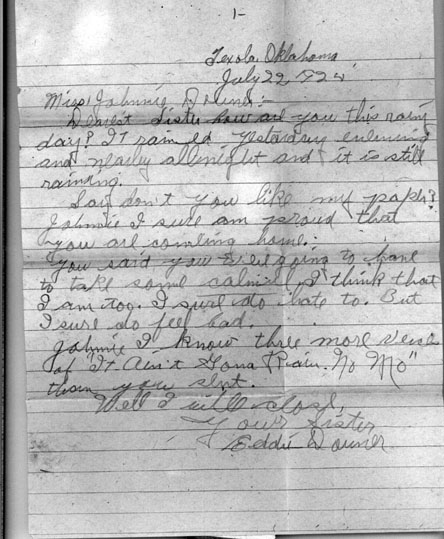 1-
Texola, Oklahoma
July 22, 1924
Miss Johnnie Downer:-
Dearest Sister how are you this rainy
day? It rained yestarday evening
and nearly all night and it is still
raining.
Say don't you like my paper?
Johnnie I sure am proud that
you are comeing home.
You said you were going to have
to take some calmel, I think that
I am too. I sure do hate to. But
I sure do feel bad.
Johnnie I know three more verses
of "It Ain't Gona Rain No Mo"
than you sent.
Well I will close,
Your Sister
Eddie Downer